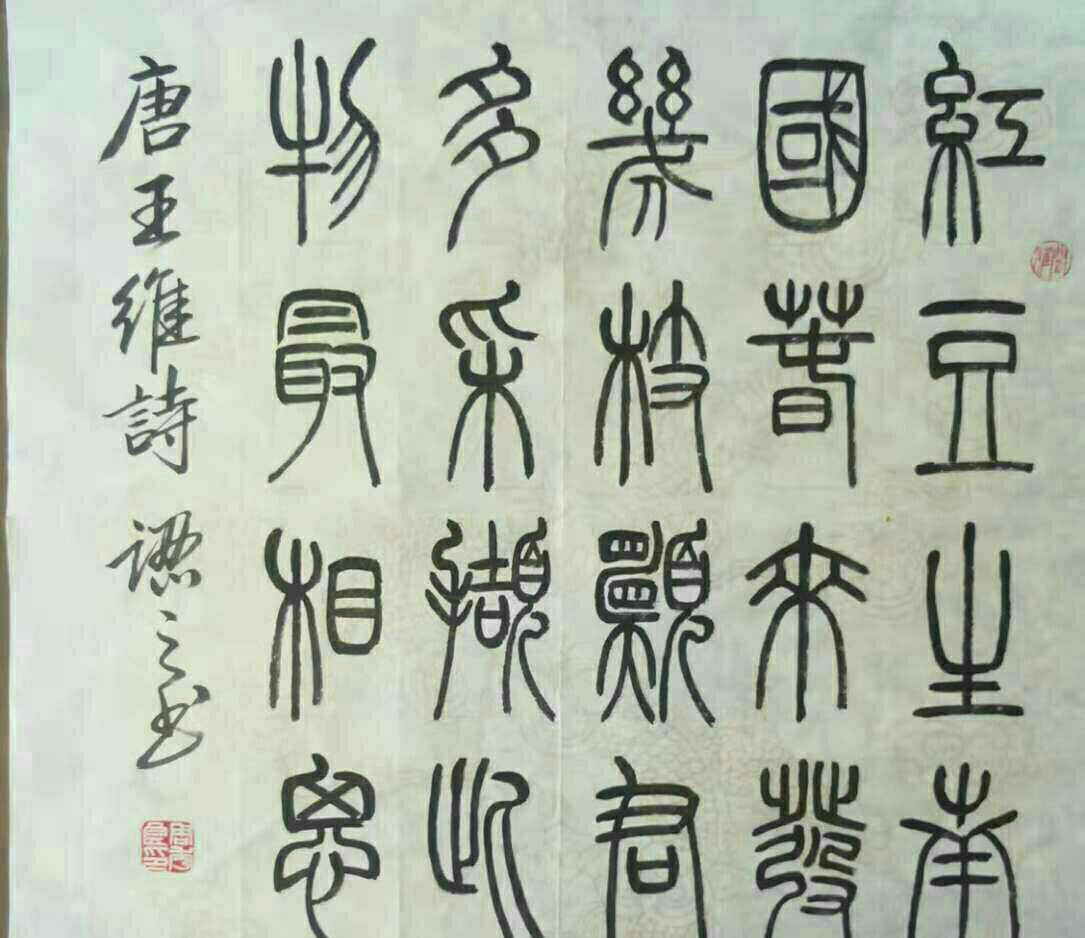 紅豆生南
國春來發
幾枝願君
多采擷此
物最相思
唐王維詩 之书